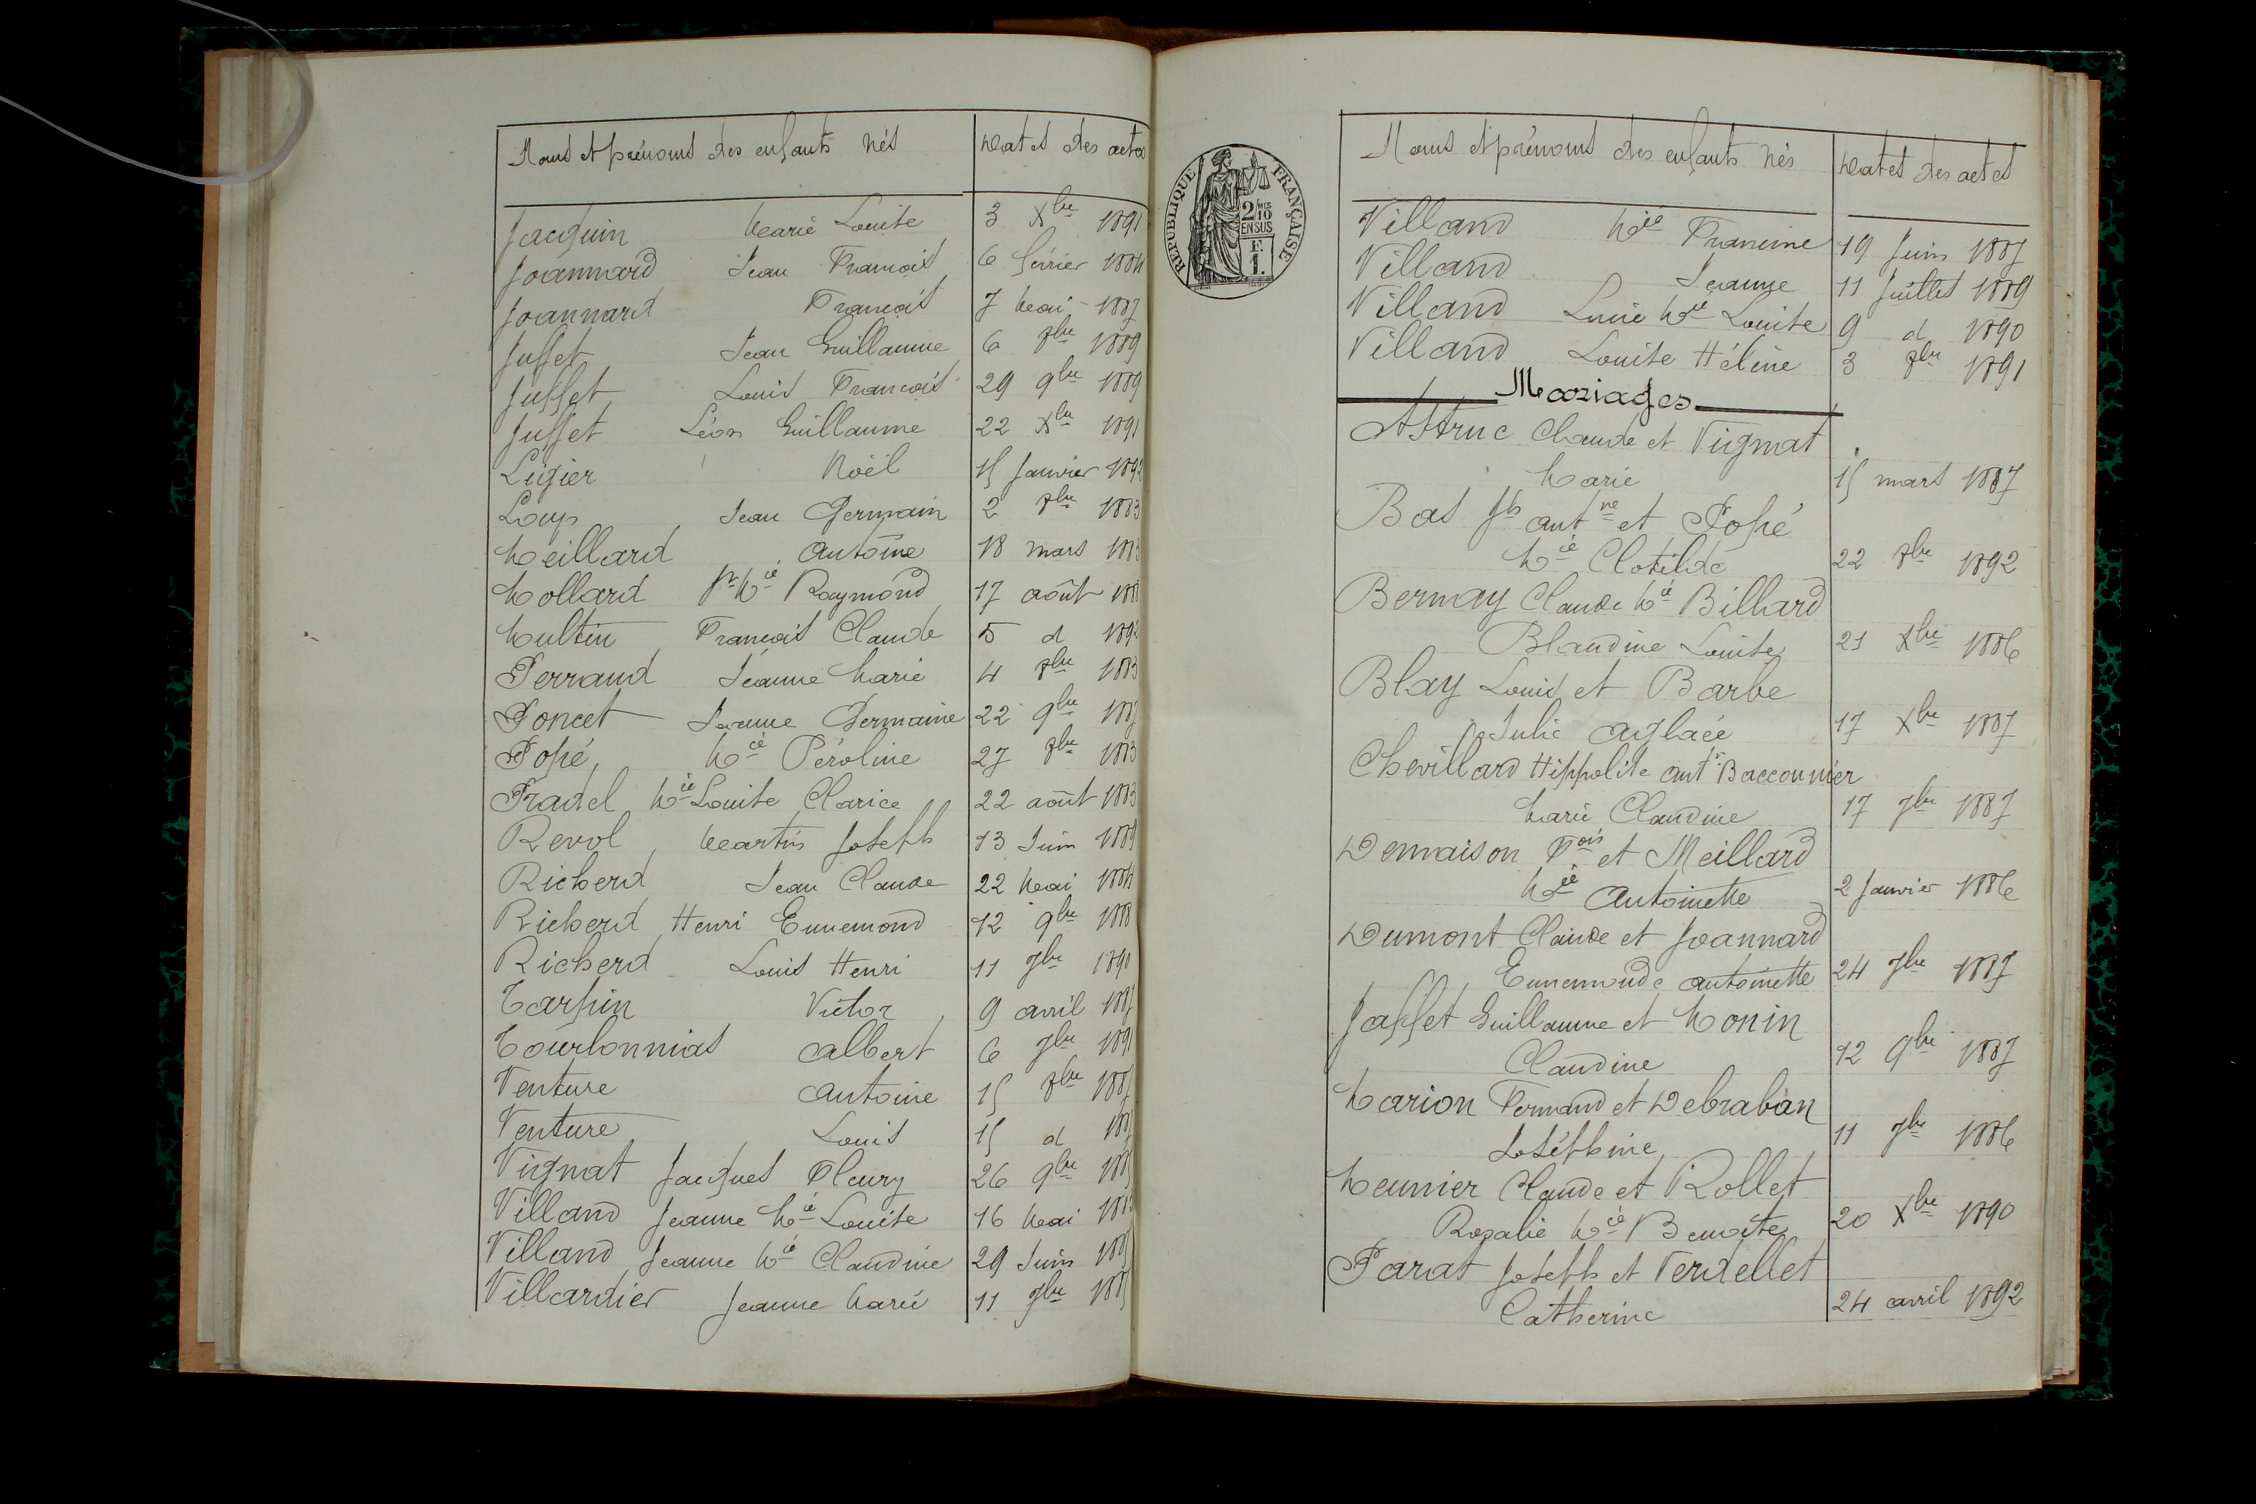 Noms et prénoms des enfants nés Dates des actes
Jacquin Marie Louise 3 Xbre 1891
Joannard Jean François 6 février 1884
Joannard François 7 Mai 1887
Juffet Jean Guillaume 6 8bre 1889
Juffet Louis François 29 9bre 1889
Juffet Léon Guillaume 22 Xbre 1891
Légier Noël 15 Janvier 1892
Loup Jean Germain 2 8bre 1883
Meillard Antoine 18 mars 1883
Mollard Raymond 17 août
Multin François Claude 5 d 1892
Perraud Jeanne Marie 4 8bre 1883
Poncet Jeanne Germaine 22 9bre
Popé Mie Péroline 27 8bre 1883
Pradel Mie Louise Clarice 22 août 1883
Revol Martin Joseph 13 Juin 1889
Richerd Jean Claude 22 Mai 1884
Richerd Henri Ennemond 12 9bre 1888
Richerd Louis Henri 11 7bre 1890
Tarpin Victor 9 avril
Tourbonnias Albert 6 7bre 1891
Venture Antoine 15 8bre
Venture Louis 15 d
Vignat Jacques Fleury 26 9bre
Villand Jeanne Mie Louise 16 Mai
Villand Jeanne Mie Claudine 29 Juin
Villardier Jeanne Marie 11 7bre
RÉPUBLIQUE FRANÇAISE
2/10 MES
EN SUS
F.
1.
Noms et prénoms des enfants nés Dates des actes
Villand Mie Francine 19 Juin 1887
Villand Jeanne 11 Juillet 1889
Villand Mie Louise 9 d 1890
Villand Louise Hélène 3 8bre 1891
Mariages
Astruc Claude et Vignat
Marie 15 mars 1887
Bas Jh antne et Popé
Mie Clotilde 22 8bre 1892
Bernay Claude Mie Billard
Blandine Louise 21 Xbre 1886
Blay Louis et Barbe
Julie Aglaée 17 Xbre 1887
Chevillard Hippolite Ant. Bacconnier
Marie Claudine 17 7bre 1887
Demaison Fois et Meillard
Mie Antoinette 2 Janvier 1886
Dumont Claude et Joannard
Ennemonde Antoinette 24 7bre 1887
Jaffet Guillaume et Monin
Claudine 12 9bre 1887
Marion Fernand et Debraban
Joséphine 11 7bre 1886
Meunier Claude et Rollet
Rosalie Mie Benoîte 20 Xbre 1890
Parat Joseph et Verdellet
Catherine 24 avril 1892